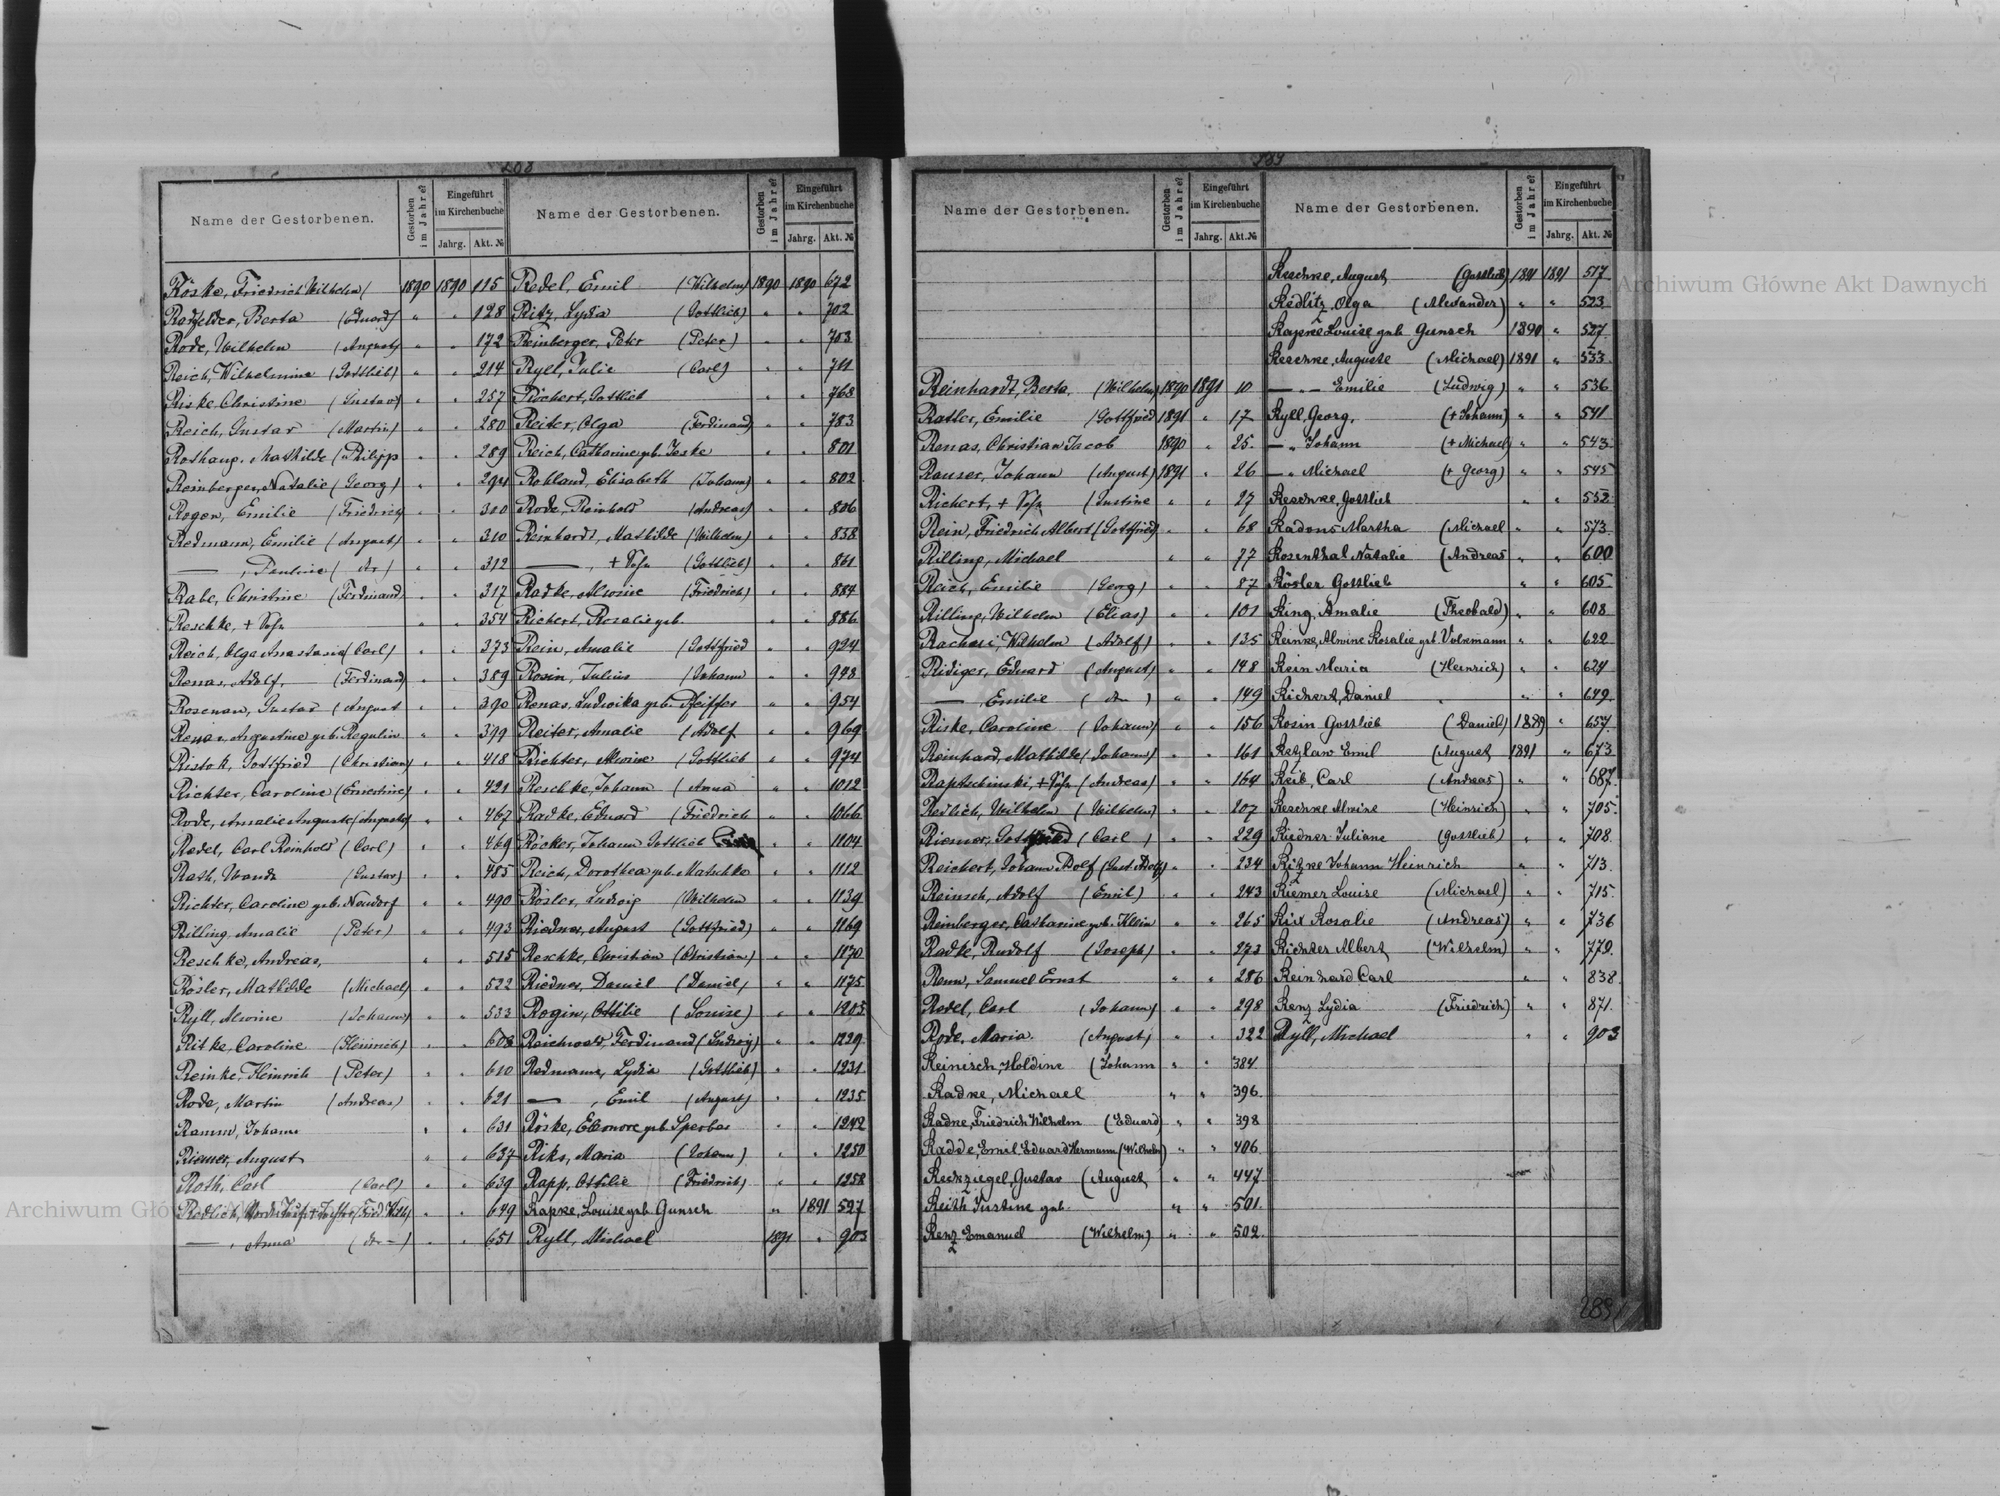 208
Name der Gestorbenen. Gestorben im Jahre? Eingeführt im Kirchenbuche Jahrg. Akt. №
Röske, Friedrich Wilhelm / 1890 1890 115
Berta (Eduard) " " 128
Rode, Wilhelm (August) " " 172
Reich, Wilhelmine (Gottlieb) " " 214
Riske, Christine (Gustav) " " 257
Reich, Gustav (Martin) " " 280
Mathilde (Philipp " " 289
Reinberger, Natalie (Georg) " " 294
Rogen, Emilie (Friedrich " " 300
Redmann, Emilie (August) " " 310
—, Pauline ( do ) " " 312
Rabe, Christine (Ferdinand " " 317
Reschke, + Sohn " " 354
Reich, Olga Anastasia (Carl) " " 373
Renas, Adolf, (Ferdinand) " " 389
Rosenau, Gustav (August " " 390
Renas, Augustine geb. Regulin " " 399
Ristok, Gottfried (Christian) " " 418
Richter, Caroline (Ernestine) " " 421
Rode, Amalie Auguste (August) " " 467
Redel, Carl Reinhold (Carl) " " 469
Rath, Wanda (Gustav) " " 485
Richter, Caroline geb. Neudorf " " 490
Rilling, Amalie (Peter) " " 493
Reschke, Andreas, " " 515
Rösler, Mathilde (Michael) " " 522
Ryll, Alwine (Johann) " " 533
Ritke, Caroline (Heinrich) " " 608
Reinke, Heinrich (Peter) " " 610
Rode, Martin (Andreas) " " 621
Ramm, Johann " " 631
Riemer, August " " 637
Roth, Carl (Carl) " " 639
Redlich, " " 649
—, Anna (do —) " " 651
Name der Gestorbenen. Gestorben im Jahre? Eingeführt im Kirchenbuche Jahrg. Akt. №
Redel, Emil (Wilhelm) 1890 1890 672
Ritz, Lydia (Gottlieb) " " 702
Reinberger, Peter (Peter) " " 703
Ryll, Julie (Carl) " " 711
Röchert, Gottlieb " " 768
Reiter, Olga (Ferdinand) " " 783
Reich, Catharine geb. Jeske " " 801
Rohland, Elisabeth (Johann) " " 802
Rode, Reinhold (Andreas) " " 806
Reinhardt, Mathilde (Wilhelm) " " 858
—, + Sohn (Gottlieb) " " 861
Radke, Alwine (Friedrich) " " 884
Richert, Rosalie geb. " " 886
Rein, Amalie (Gottfried " " 924
Rosin, Julius (Johann " " 948
Renas, Ludwika geb. Pfeiffer " " 954
Reiter, Amalie (Adolf " " 969
Richter, Alwine (Gottlieb " " 974
Reschke, Johann (Anna " " 1012
Radke, Eduard (Friedrich " " 1066
Röcker, Johann Gottlieb " " 1104
Reich, Dorothea geb. Matschke " " 1112
Rösler, Ludwig (Wilhelm " " 1139
Riedner, August (Gottfried) " " 1169
Reschke, Christian (Christian) " " 1170
Riedner, Daniel (Daniel) " " 1175
Rogin, Ottilie (Louise) " " 1205
Reichwald, Ferdinand (Ludwig) " " 1229
Redmann, Lydia (Gottlieb) " " 1231
—, Emil (August) " " 1235
Röske, Eleonore geb. Sperber " " 1242
Riks, Maria (Johann) " " 1250
Rapp, Ottilie (Friedrich) " " 1258
Rapke, Louise geb. Gunsch " 1891 527
Ryll, Michael 1891 " 903
289
Name der Gestorbenen. Gestorben im Jahre? Eingeführt im Kirchenbuche Jahrg. Akt. №
Reinhardt, Berta, (Wilhelm) 1890 1891 10
Ratler, Emilie (Gottfried 1891 " 17
Renas, Christian Jacob 1890 " 25.
Rauser, Johann (August) 1891 " 26
Richert, + Sohn (Justine " " 27
Rein, Friedrich Albert (Gottfried) " " 68
Rilling, Michael " " 77
Reich, Emilie (Georg) " " 87
Rilling, Wilhelm (Elias) " " 101
Wilhelm (Adolf) " " 135
Ridiger, Eduard (August) " " 148
—, Emilie ( do ) " " 149
Riske, Caroline (Johann) " " 156
Reinhard, Mathilde (Johann) " " 161
Raptschinski, + Sohn (Andreas) " " 164
Redlich, Wilhelm (Wilhelm) " " 207
Riemer, Gottfried (Carl ) " " 229
Reichert, Johann Adolf (Gust. Adolf) " " 234
Reinsch, Adolf (Emil) " " 243
Reinberger, Catharine geb. Klein " " 265
Radke, Rudolf (Joseph) " " 273
Renn, Samuel Ernst " " 286
Redel, Carl (Johann) " " 298
Rode, Maria (August) " " 322
Reinisch, Holdine (Johann " " 384
Radke, Michael " " 396.
Radke, Friedrich Wilhelm (Eduard) " " 398
Radde, Emil Eduard Hermann (Wilhelm) " " 406
Rechziegel, Gustav (August " " 447.
Reith Justine geb. " " 501.
Renz Emanuel (Wilhelm) " " 502.
Name der Gestorbenen. Gestorben im Jahre? Eingeführt im Kirchenbuche Jahrg. Akt. №
Reschke, August (Gottlieb) 1891 1891 517
Redlitz, Olga (Alexander) " " 523
Rapke Louise geb. Gunsch 1890 " 527.
Reschke, Auguste (Michael) 1891 " 533
— " — Emilie (Ludwig) " " 536
Ryll, Georg, (+ Johann) " " 541
— " Johann (+ Michael) " " 543.
— " Michael (+ Georg) " " 545
Reschke, Gottlieb " " 552
Radons Martha (Michael " " 573.
Rosenthal Natalie (Andreas " " 600
Rösler Gottlieb " " 605.
Ring, Amalie (Theobald) " " 608.
Reinke, Alwine Rosalie geb. Volkmann " " 622
Rein Maria (Heinrich) " " 624
Richert, Daniel " " 649.
Rosin Gottlieb (Daniel) 1889 " 657.
Retzlaw Emil (August 1891 " 673
Reib, Carl (Andreas) " " 687.
Reschke Alwine (Heinrich) " " 705.
Riedner Juliane (Gottlieb) " " 708.
Ritzke Johann Heinrich " " 713.
Riemer Louise (Michael) " " 715.
Rist Rosalie (Andreas) " " 736
Richter Albert (Wilhelm) " " 779.
Reinhard Carl " " 838
Renz Lydia (Friedrich) " " 871.
Ryll, Michael " " 903
289
Archiwum Główne Akt Dawnych